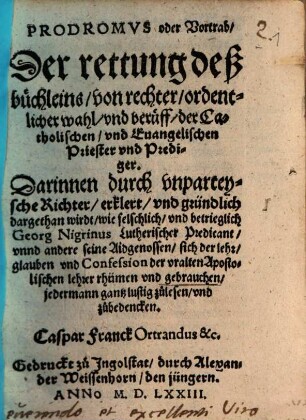 PRODROMVS oder Vortrab/
Der rettung deß
büchleins/von rechter/ordent-
licher wahl/vnd berüff/der Ca-
tholischen/vnd Euangelischen
Priester vnd Predi-
ger.
Darinnen durch vnpartey-
sche Richter/erklert/vnd gründlich
dargethan wirdt/wie felschlich/vnd betrieglich
Georg Nigrinus Lutherischer Predicant/
vnnd andere seine Aidgenossen/sich der lehr/
glauben vnd Confession der vralten Aposto-
lischen lehrer rhümen vnd gebrauchen/
jedermann gantz lustig zülesen/vnd
zübedencken.
Caspar Franck Ortrandus &c.
Gedruckt zü Ingolstat/durch Alexan-
der Weissenhorn/den jüngern.
ANNO M. D. LXXIII.
et excellenti Viro